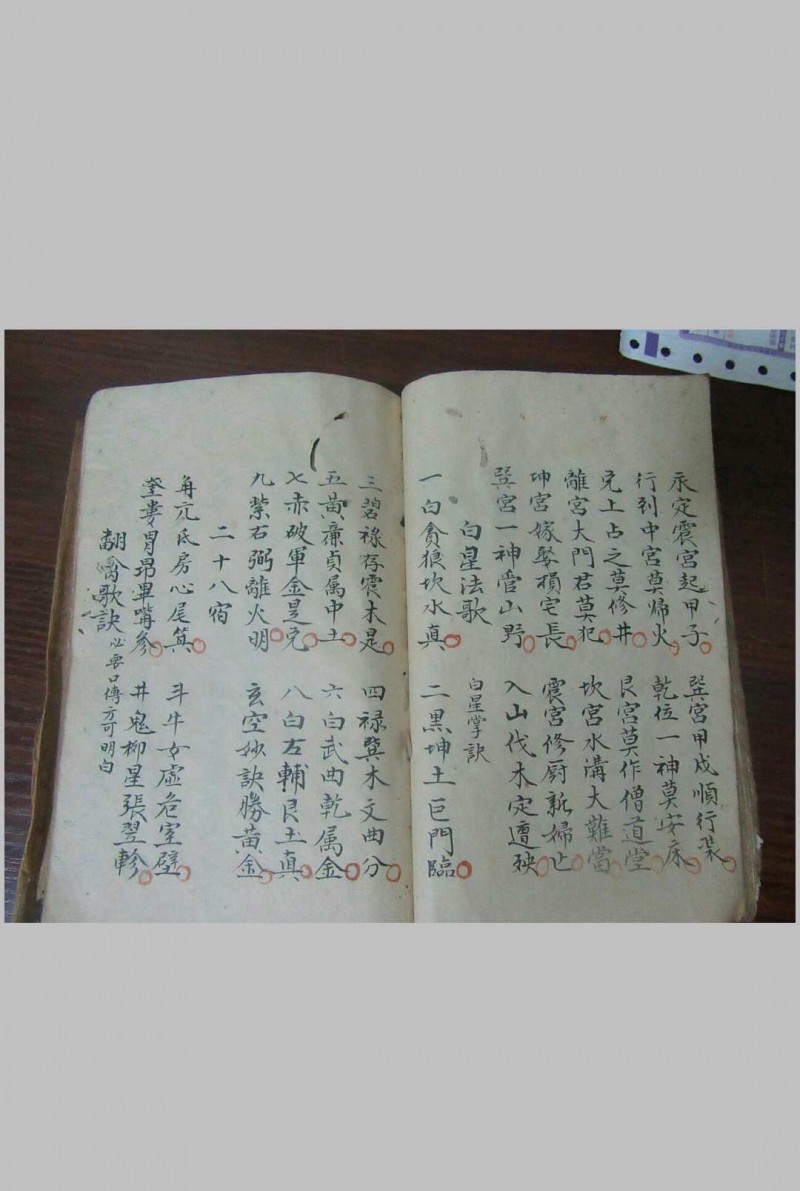 永定震宮起甲子 巽宮甲戌順行裝
行到中宮莫帰火 乾位一神莫安床
兌上占之莫修井 艮宮莫作僧道堂
離宮大門君莫犯 坎宮水溝大難當
坤宮嫁娶損宅長 震宮修厨新婦亡
巽宮一神管山野 入山伐木定遭殃
白星法歌 白星掌訣
一白貪狼坎水真 二黑坤土巨門臨
三碧祿存震木是 四禄巽木文曲分
五黃廉貞属中土 六白武曲乾属金
七赤破軍金是兌 八白左輔艮土真
九紫石弼離火明 玄空妙訣勝黃金
二十八宿
角亢氐房心尾箕 斗牛女虛危室壁
奎婁胃昴畢嘴參 井鬼柳星張翌軫
翻禽歌訣 必要口傳方可明白